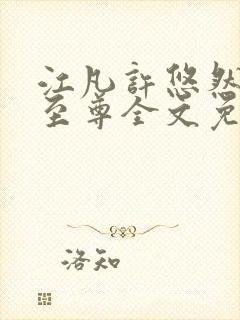 江凡許悠然
至尊全文免
洛知